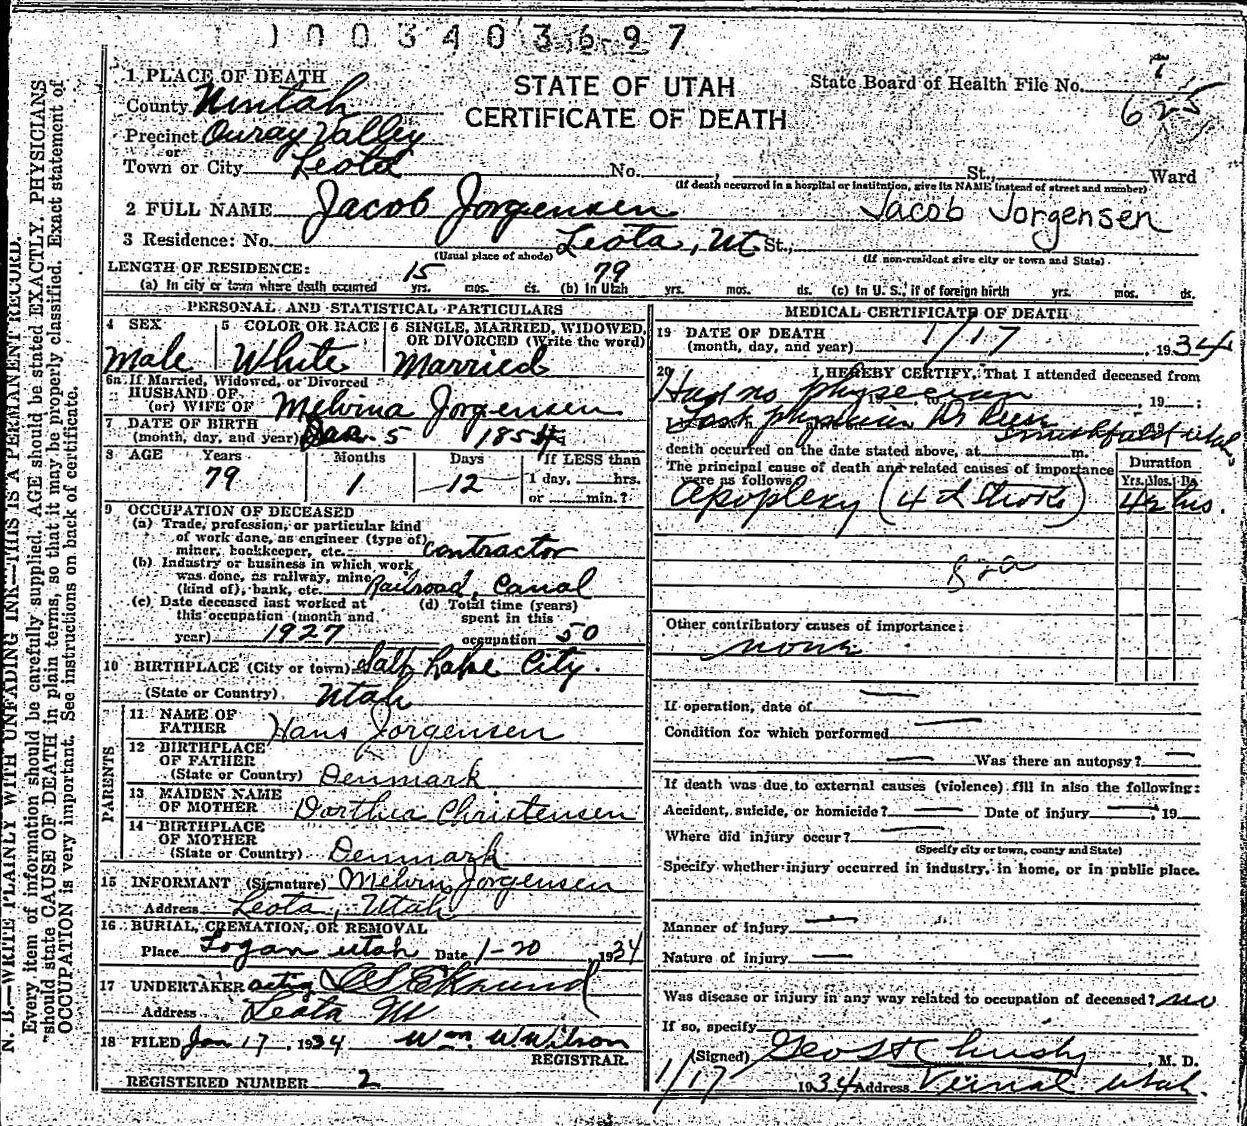 1003403697
1 PLACE OF DEATH
STATE OF UTAH
CERTIFICATE OF DEATH
State Board of Health File No. 7
625
County Uintah
Precinct Ouray Valley
or
Town or City Leota No. St., Ward
(If death occurred in a hospital or institution, give its NAME instead of street and number)
2 FULL NAME Jacob Jorgensen Jacob Jorgensen
3 Residence: No. Leota, Ut St.,
(Usual place of abode) (If non-resident give city or town and State)
LENGTH OF RESIDENCE:
(a) In city or town where death occurred 15 yrs. mos. ds. (b) In Utah 79 yrs. mos. ds. (c) In U. S., if of foreign birth yrs. mos. ds.
PERSONAL AND STATISTICAL PARTICULARS
4 SEX 5 COLOR OR RACE 6 SINGLE, MARRIED, WIDOWED,
OR DIVORCED (Write the word)
Male White Married
6a If Married, Widowed, or Divorced
HUSBAND OF
(or) WIFE OF Melvina Jorgensen
7 DATE OF BIRTH
(month, day, and year) 5 1854
8 AGE Years Months Days If LESS than
79 1 12 1 day, hrs.
or min.?
9 OCCUPATION OF DECEASED
(a) Trade, profession, or particular kind
of work done, as engineer (type of)
miner, bookkeeper, etc. contractor
(b) Industry or business in which work
was done, as railway, mine
(kind of), bank, etc. Railroad, Canal
(c) Date deceased last worked at
this occupation (month and
year) 1927
(d) Total time (years)
spent in this
occupation 50
10 BIRTHPLACE (City or town) Salt Lake City.
(State or Country) Utah
PARENTS
11 NAME OF
FATHER Hans Jorgensen
12 BIRTHPLACE
OF FATHER
(State or Country) Denmark
13 MAIDEN NAME
OF MOTHER Dorthia Christensen
14 BIRTHPLACE
OF MOTHER
(State or Country) Denmark
15 INFORMANT (Signature) Melvin Jorgensen
Address Leota, Utah
16 BURIAL, CREMATION, OR REMOVAL
Place Logan utah Date 1-20, 1934
17 UNDERTAKER acting
Address Leota
18 FILED Jan 17, 1934 Wm. W Wilson
REGISTRAR.
REGISTERED NUMBER 2
MEDICAL CERTIFICATE OF DEATH
19 DATE OF DEATH
(month, day, and year) 1/17, 1934
20 I HEREBY CERTIFY, That I attended deceased from
Had no physician, 19 ;
Last physician Dr
Smithfield Utah
death occurred on the date stated above, at m.
The principal cause of death and related causes of importance
were as follows:
Duration
Yrs. Mos. Ds.
Apoplexy (4th Stroke) 42 hrs.
82a
Other contributory causes of importance:
none
If operation, date of
Condition for which performed
Was there an autopsy?
If death was due to external causes (violence) fill in also the following:
Accident, suicide, or homicide? Date of injury , 19
Where did injury occur?
(Specify city or town, county and State)
Specify whether injury occurred in industry, in home, or in public place.
Manner of injury
Nature of injury
Was disease or injury in any way related to occupation of deceased? no
If so, specify
(Signed) Geo H Christy, M. D.
1/17 1934 Address Vernal Utah.
N. B.—WRITE PLAINLY WITH UNFADING INK—THIS IS A PERMANENT RECORD.
Every item of information should be carefully supplied. AGE should be stated EXACTLY. PHYSICIANS
should state CAUSE OF DEATH in plain terms, so that it may be properly classified. Exact statement of
OCCUPATION is very important. See instructions on back of certificate.